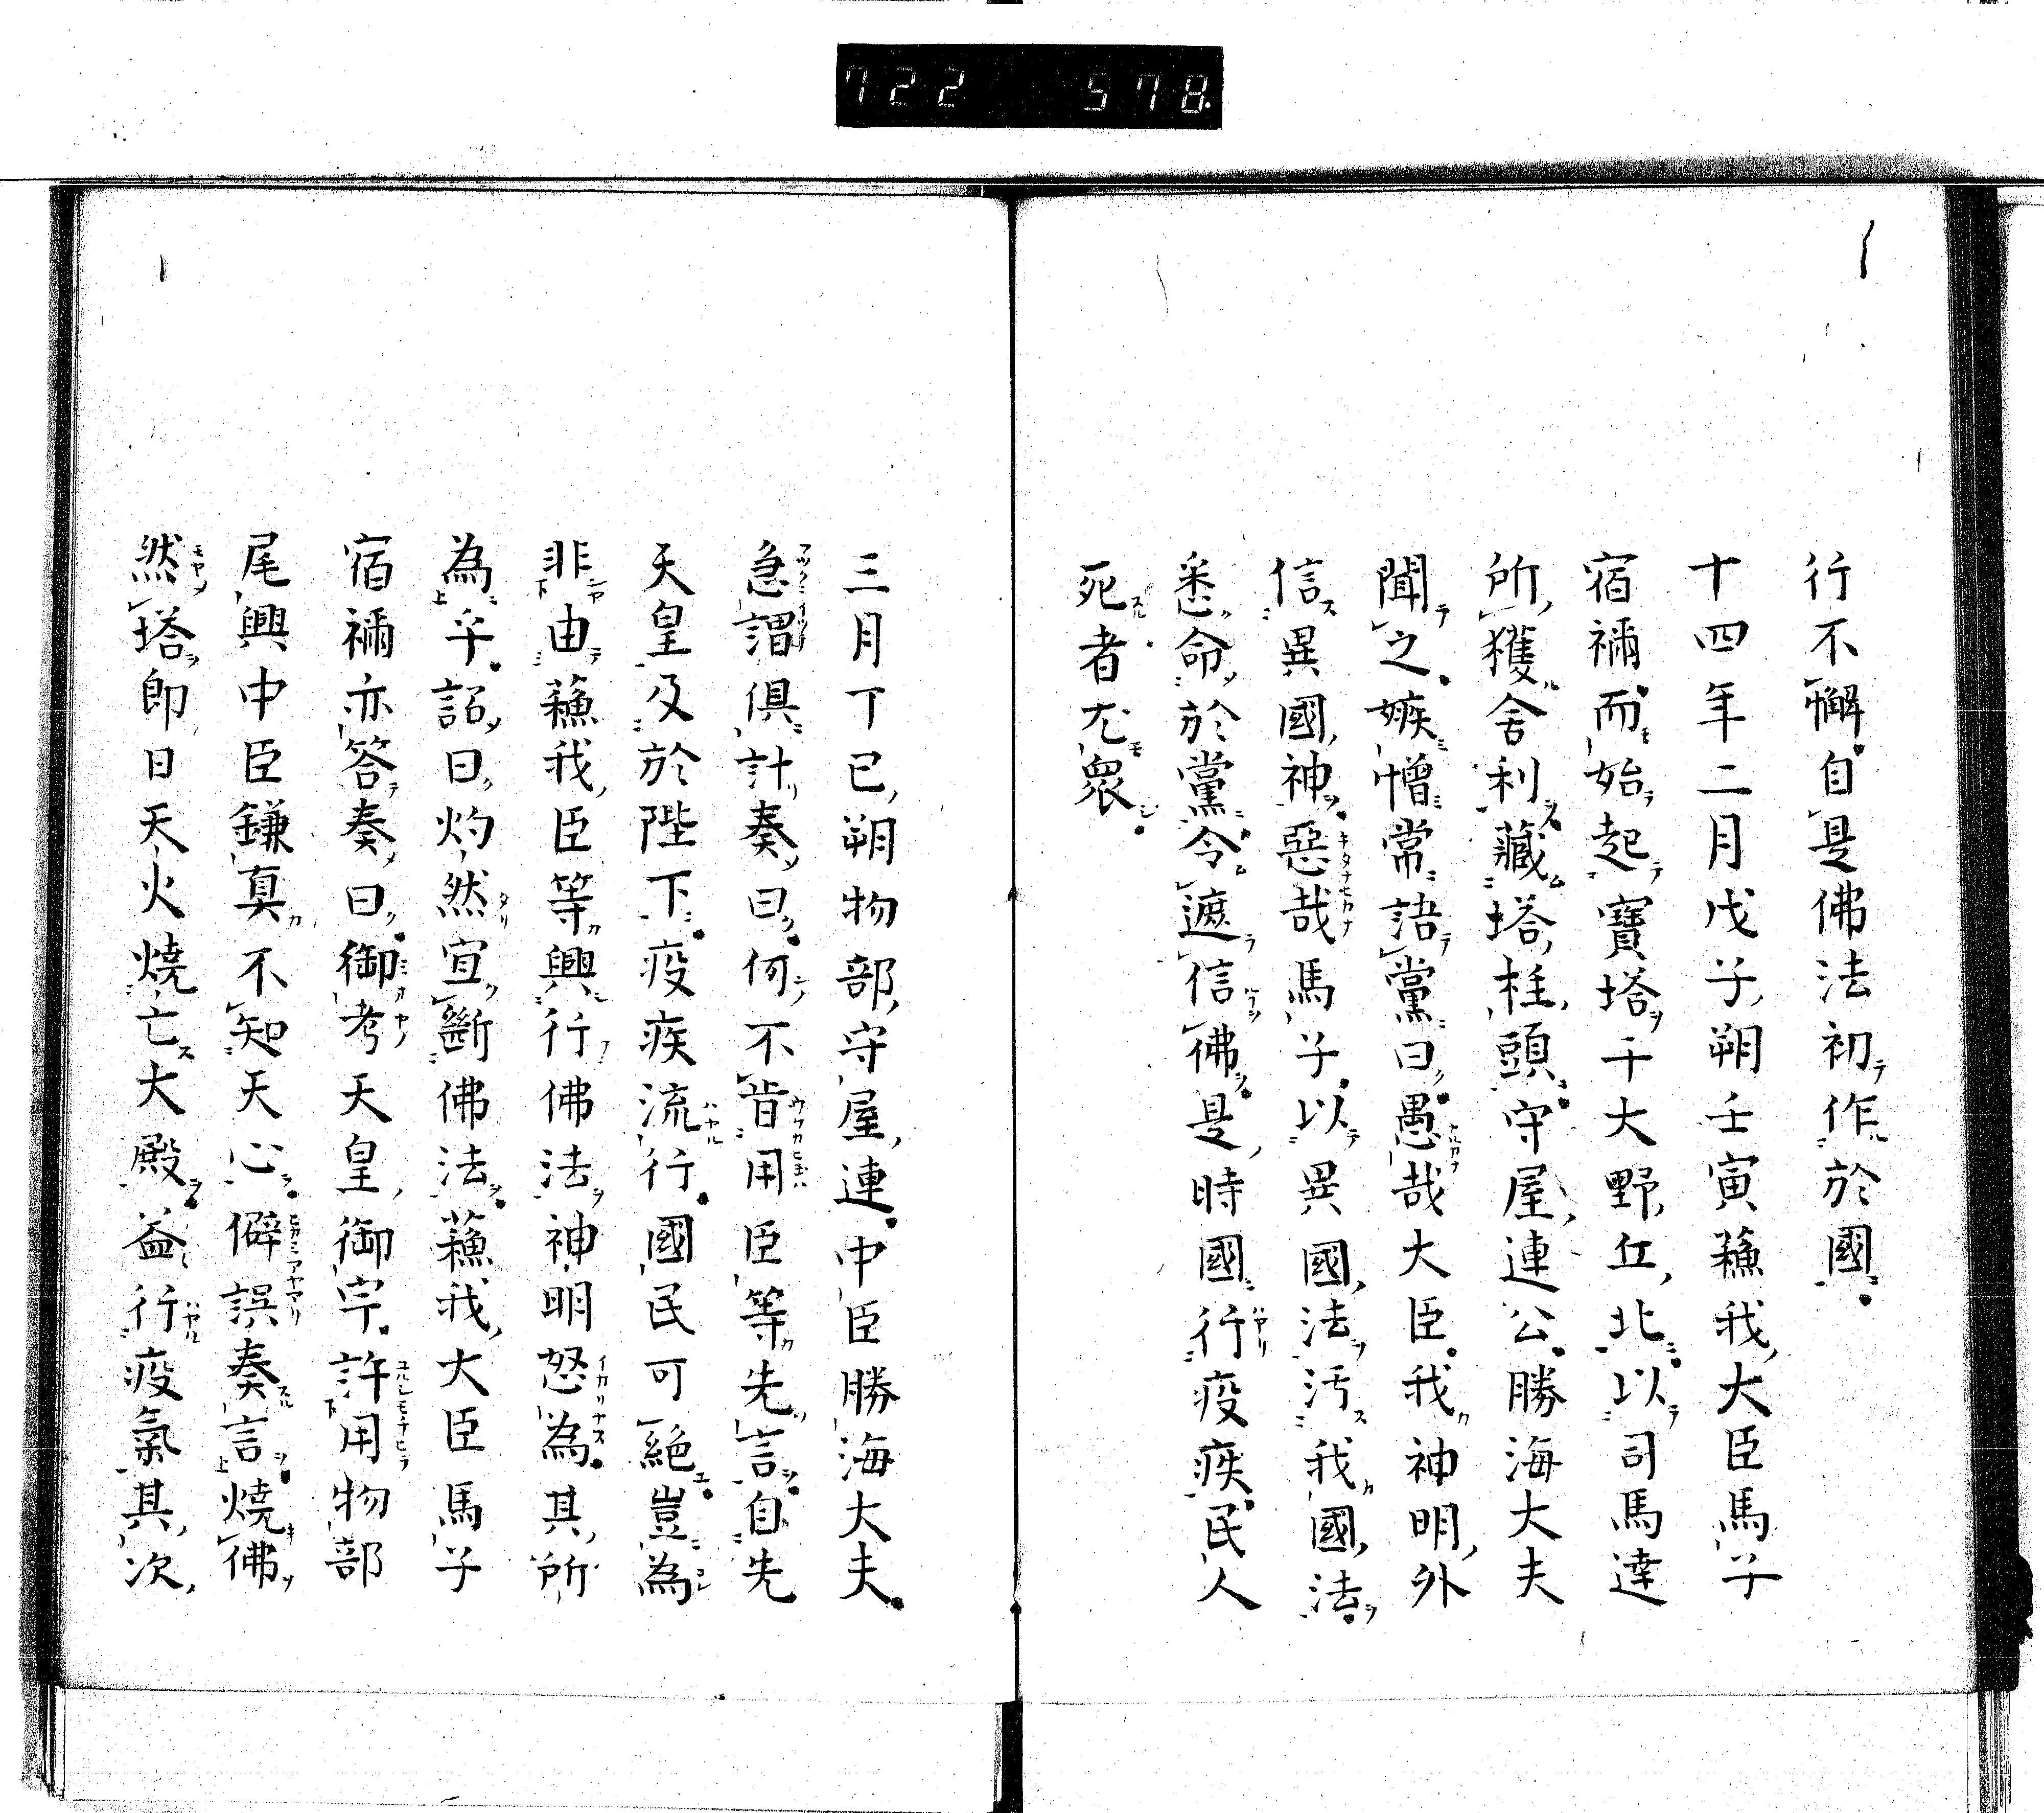 722 578
行不懈自是佛法初作於國
十四年二月戊子朔壬寅蘓我大臣馬子
宿禰而始起寶塔千大野丘北以司馬達
所獲舍利藏塔柱頭守屋連公勝海大夫
聞之嫉憎常語黨曰愚哉大臣我神明外
信異國神惡哉馬子以異國法汚我國法
悉命於黨令遮信佛是時國行疫疾民人
死者尤衆
三月丁巳朔物部守屋連中臣勝海大夫
急謂俱計奏曰何不肯用臣等先言自先
天皇及於陛下疫疾流行國民可絕豈為
非由蘓我臣等興行佛法神明怒為其所
為乎詔曰灼然宜斷佛法蘓我大臣馬子
宿禰亦答奏曰御考天皇御宇許用物部
尾興中臣鎌真不知天心僻誤奏言燒佛
然塔即日天火燒亡大殿益行疫氣其次